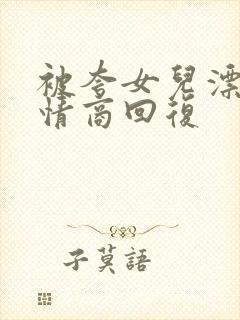 被夸女兒漂
情商回復
子莫語